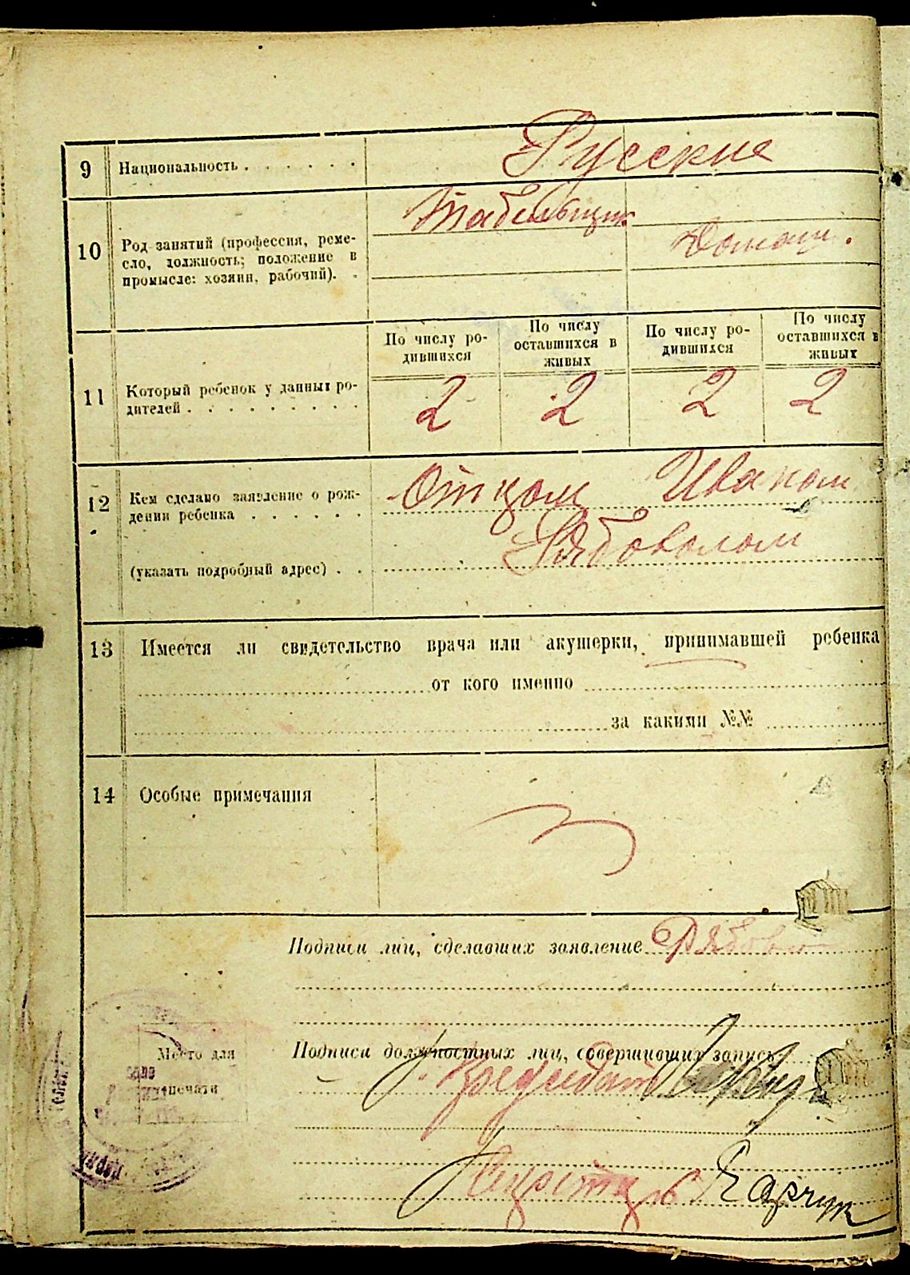 9 Национальность . . . . . . . Русские
Табельщик
Домаш.
10 Род занятий (профессия, реме-
сло, должность; положение в
промысле: хозяин, рабочий). .
По числу ро-
дившихся
По числу
оставшихся в
живых
По числу ро-
дившихся
По числу
оставшихся в
живых
11 Который ребенок у данных ро-
дителей . . . . . . . . .
2 2 2 2
12 Кем сделано заявление о рож-
дении ребенка . . . . . .
Отцом Иваном
Рябоволом
(указать подробный адрес) . .
13 Имеется ли свидетельство врача или акушерки, принимавшей ребенка
от кого именно
за какими №№
14 Особые примечания
Подписи лиц, сделавших заявление Рябово
Подписи должностных лиц, совершивших запись
Место для
печати
Председат
Секретарь Карчук